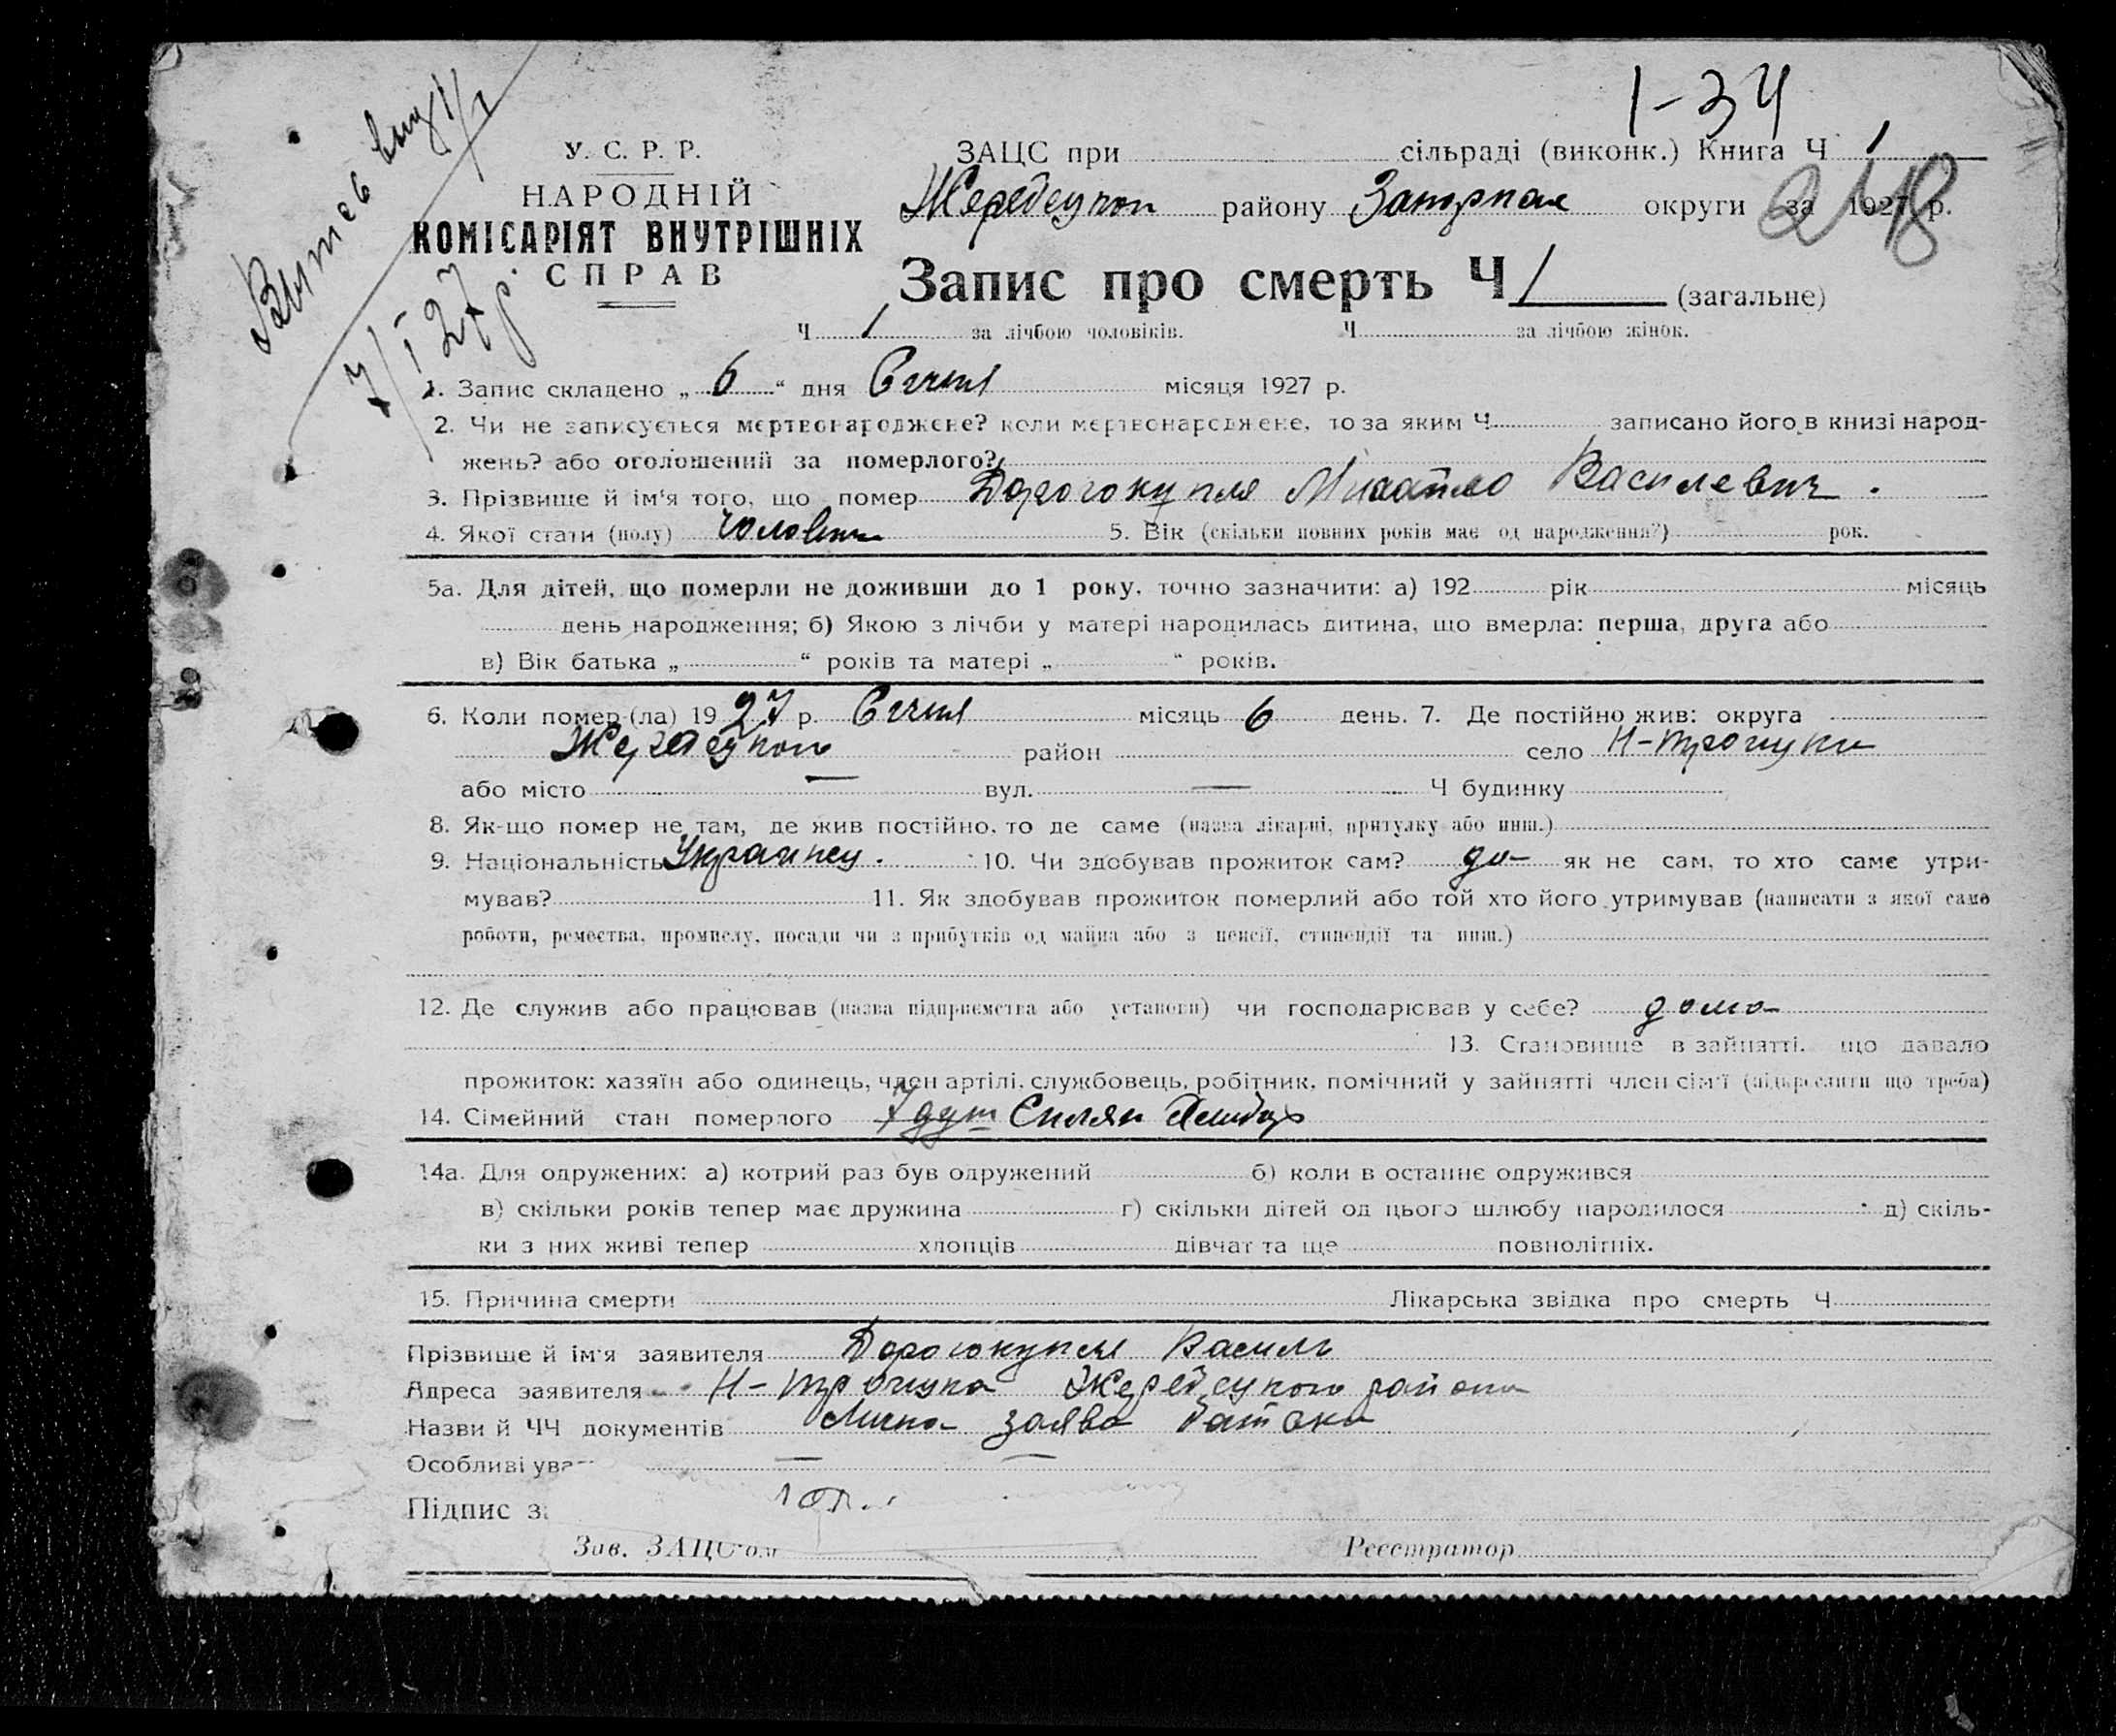 1-34
У. С. Р. Р.
НАРОДНІЙ
КОМІСАРІЯТ ВНУТРІШНІХ
СПРАВ
7/I 27 р.
ЗАЦС при сільраді (виконк.) Книга Ч 1
району округи за 1927 р.
248
Запис про смерть Ч 1 (загальне)
Ч 1 за лічбою чоловіків. Ч за лічбою жінок.
1. Запис складено „ 6 “ дня Січня місяця 1927 р.
2. Чи не записується мертвонароджене? коли мертвонароджене, то за яким Ч записано його в книзі народ-
жень? або оголошений за померлого?
3. Прізвище й ім'я того, що помер Дорогокупля Михайло Василевич.
4. Якої стати (полу) 5. Вік (скільки повних років має од народження?) рок.
5а. Для дітей, що померли не доживши до 1 року, точно зазначити: а) 192 рік місяць
день народження; б) Якою з лічби у матері народилась дитина, що вмерла: перша, друга або
в) Вік батька „ “ років та матері „ “ років.
6. Коли помер (ла) 19 27 р. Січня місяць 6 день. 7. Де постійно жив: округа
район село Н-Троицки
або місто — вул. — Ч будинку
8. Як-що помер не там, де жив постійно, то де саме (назва лікарні, притулку або инш.)
9. Національність Украинец. 10. Чи здобував прожиток сам? як не сам, то хто саме утри-
мував? 11. Як здобував прожиток померлий або той хто його утримував (написати з якої саме
роботи, ремества, промислу, посади чи з прибутків од майна або з пенсії, стипендії та инш.)
12. Де служив або працював (назва підприємства або установи) чи господарював у себе? дома
13. Становище в зайнятті, що давало
прожиток: хазяїн або одинець, член артілі, службовець, робітник, помічний у зайнятті член сім'ї (підкреслити що треба)
14. Сімейний стан померлого
14а. Для одружених: а) котрий раз був одружений б) коли в останнє одружився
в) скільки років тепер має дружина г) скільки дітей од цього шлюбу народилося д) скіль-
ки з них живі тепер хлопців дівчат та ще повнолітніх.
15. Причина смерти Лікарська звідка про смерть Ч
Прізвище й ім'я заявителя Дорогокупля Василь
Адреса заявителя Н-Троицка Жеребецкого района
Назви й ЧЧ документів Лична заява батька
Особливі ува — —
Підпис з
Зав. ЗАЦС'ом Реєстратор